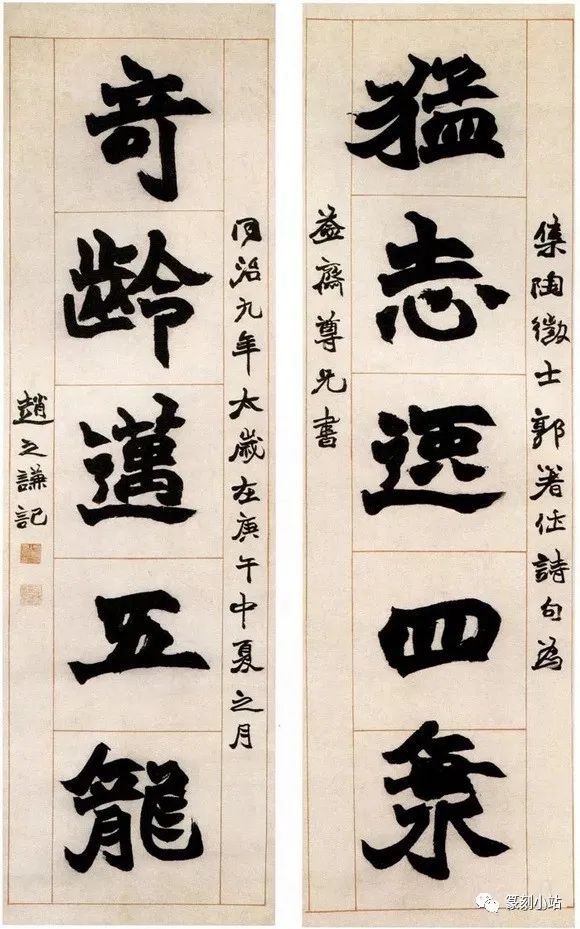 集陶徵士郭著作詩句為
猛志逸四海
益齋尊兄書
同治九年太歲在庚午中夏之月
奇齡邁五龍
趙之謙記
篆刻小站